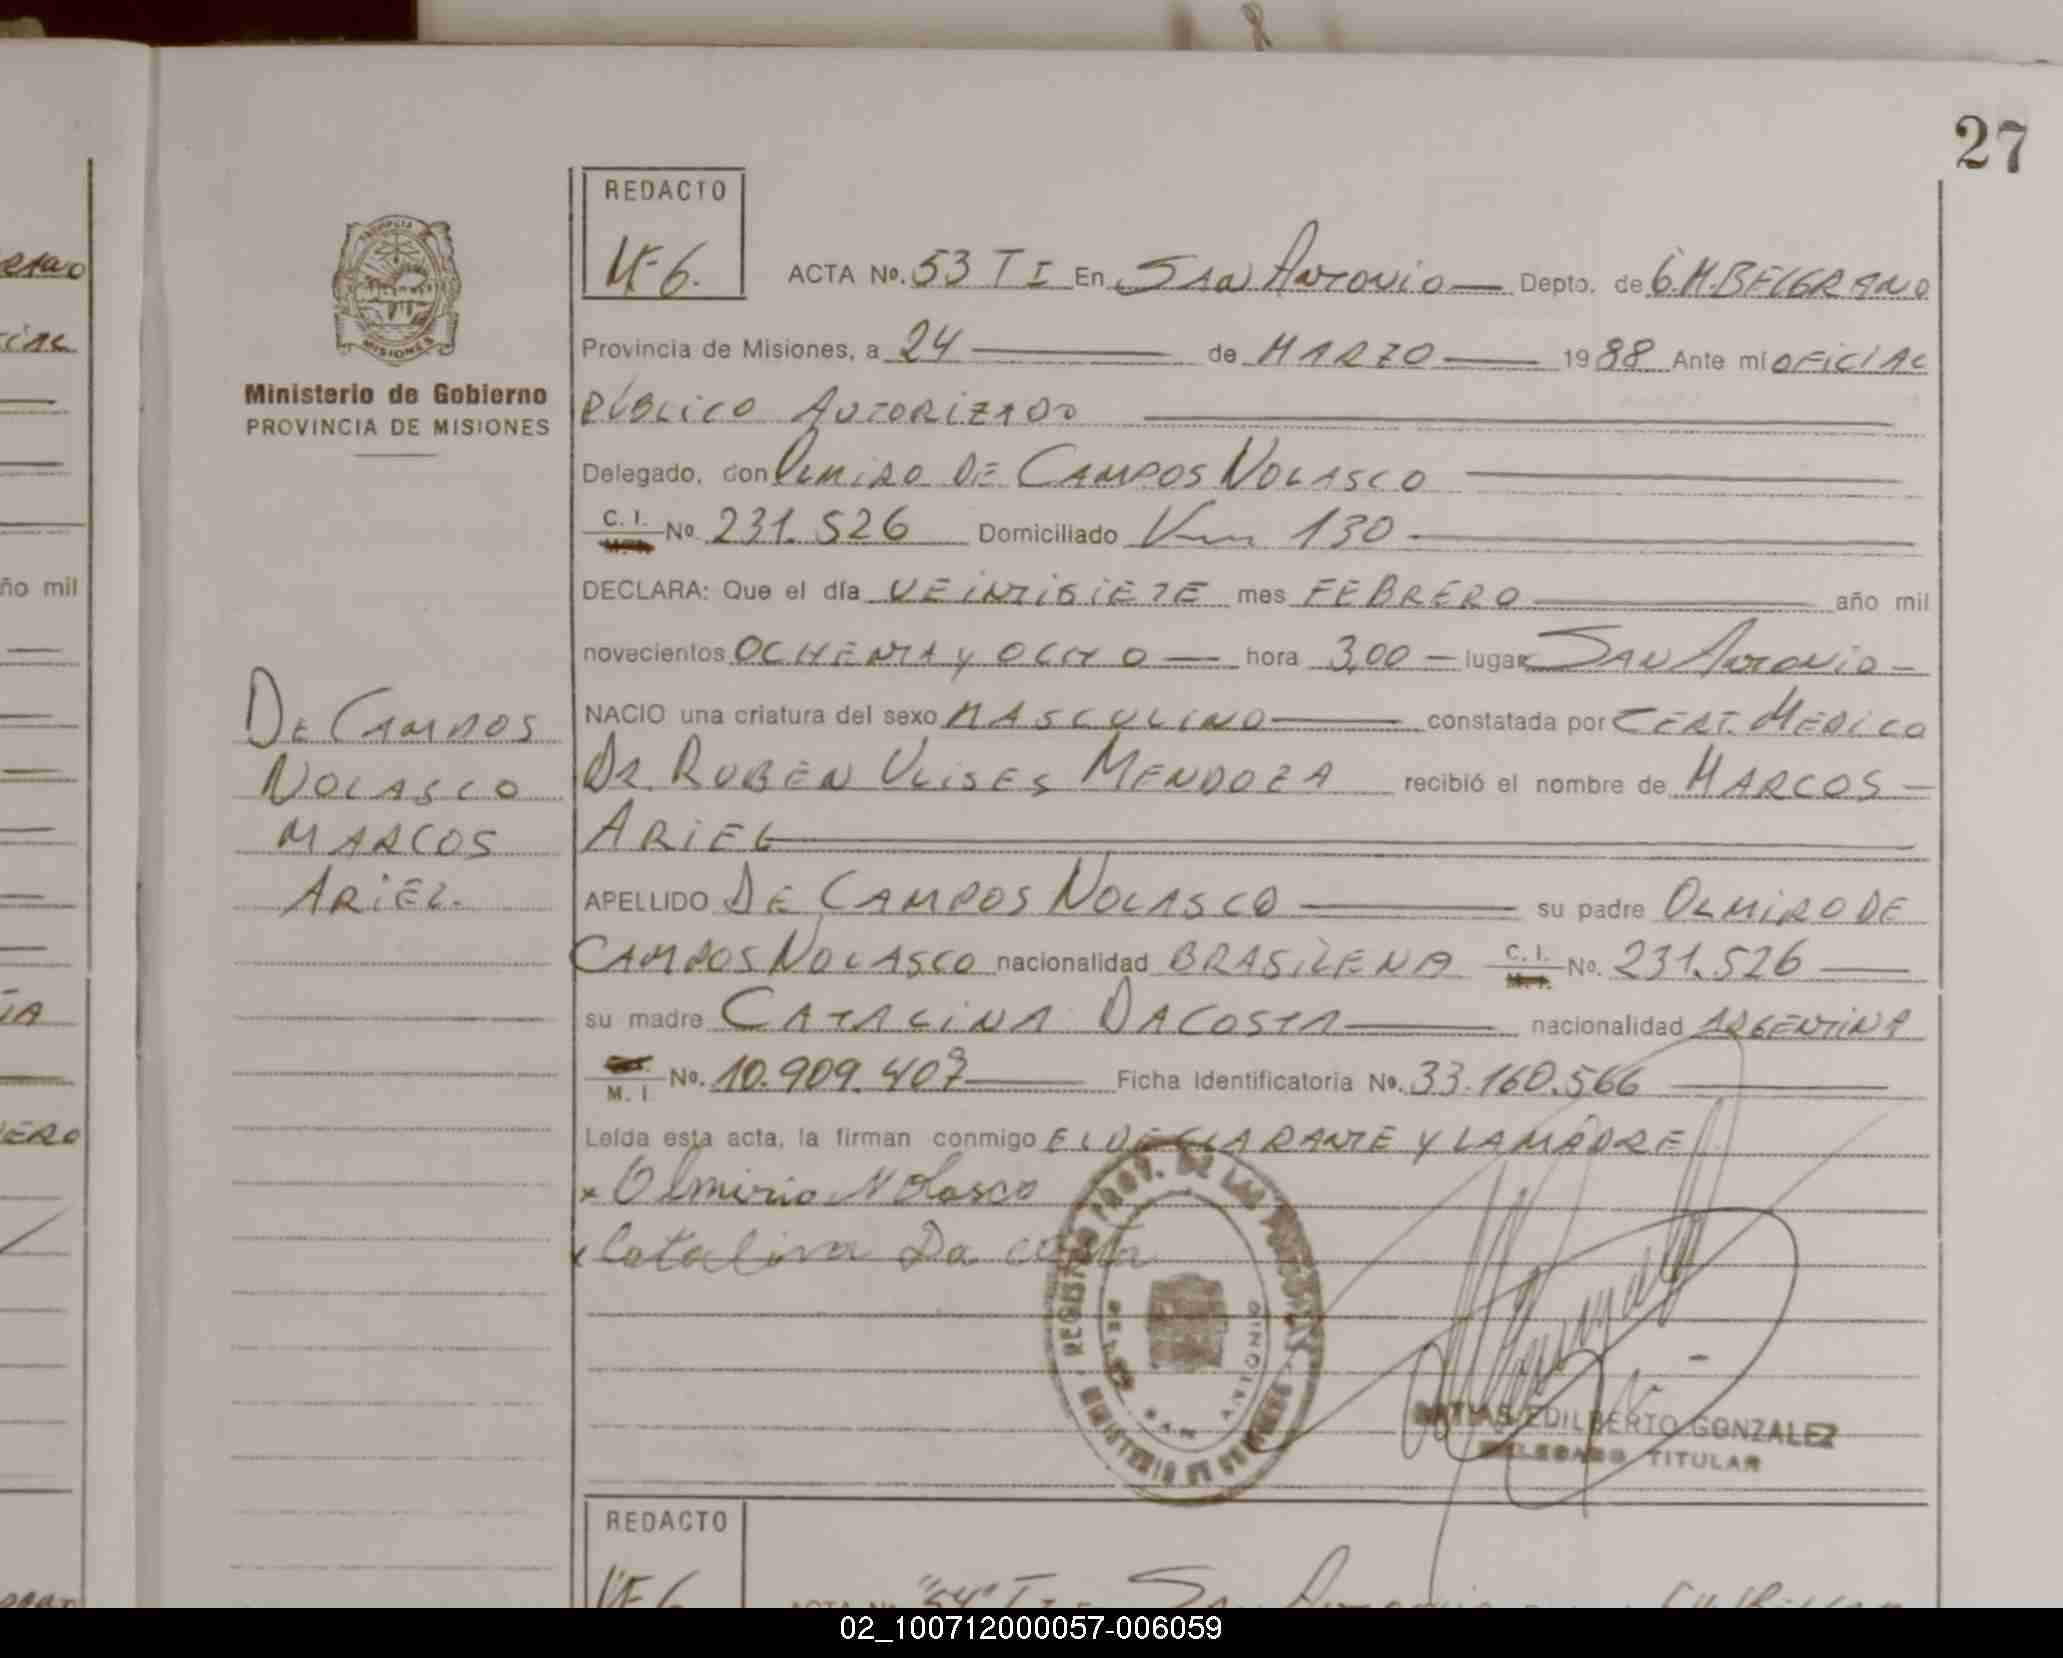 27
REDACTO
ACTA No. 53 T I En San Antonio — Depto. de G.M. BELGRANO
Provincia de Misiones, a 24 — de MARZO — 1988 Ante mí OFICIAL
Ministerio de Gobierno
PROVINCIA DE MISIONES
PÚBLICO AUTORIZADO
Delegado, don OLMIRO DE CAMPOS NOLASCO
C. I. No. 231.526 Domiciliado Km 130
DECLARA: Que el día VEINTISIETE mes FEBRERO — año mil
novecientos OCHENTA y OCHO — hora 3,00 — lugar SAN ANTONIO —
DE CAMPOS
NOLASCO
MARCOS
ARIEL.
NACIO una criatura del sexo MASCULINO — constatada por CERT. MEDICO
DR. RUBEN ULISES MENDOZA recibió el nombre de MARCOS —
ARIEL
APELLIDO DE CAMPOS NOLASCO — su padre OLMIRO DE
CAMPOS NOLASCO nacionalidad BRASILENA C. I. No. 231.526 —
su madre CATALINA DACOSTA — nacionalidad ARGENTINA
M. I. No. 10.909.407 — Ficha Identificatoria No. 33.160.566 —
Leída esta acta, la firman conmigo EL DECLARANTE Y LA MADRE
x Olmirio Nolasco
x Catalina Da costa
REGISTRO PROV. DE LAS PERSONAS
SAN ANTONIO
MINISTERIO DE GOBIERNO
MATIAS EDILBERTO GONZALEZ
DELEGADO TITULAR
REDACTO
ACTA No. "54" T I
02_100712000057-006059